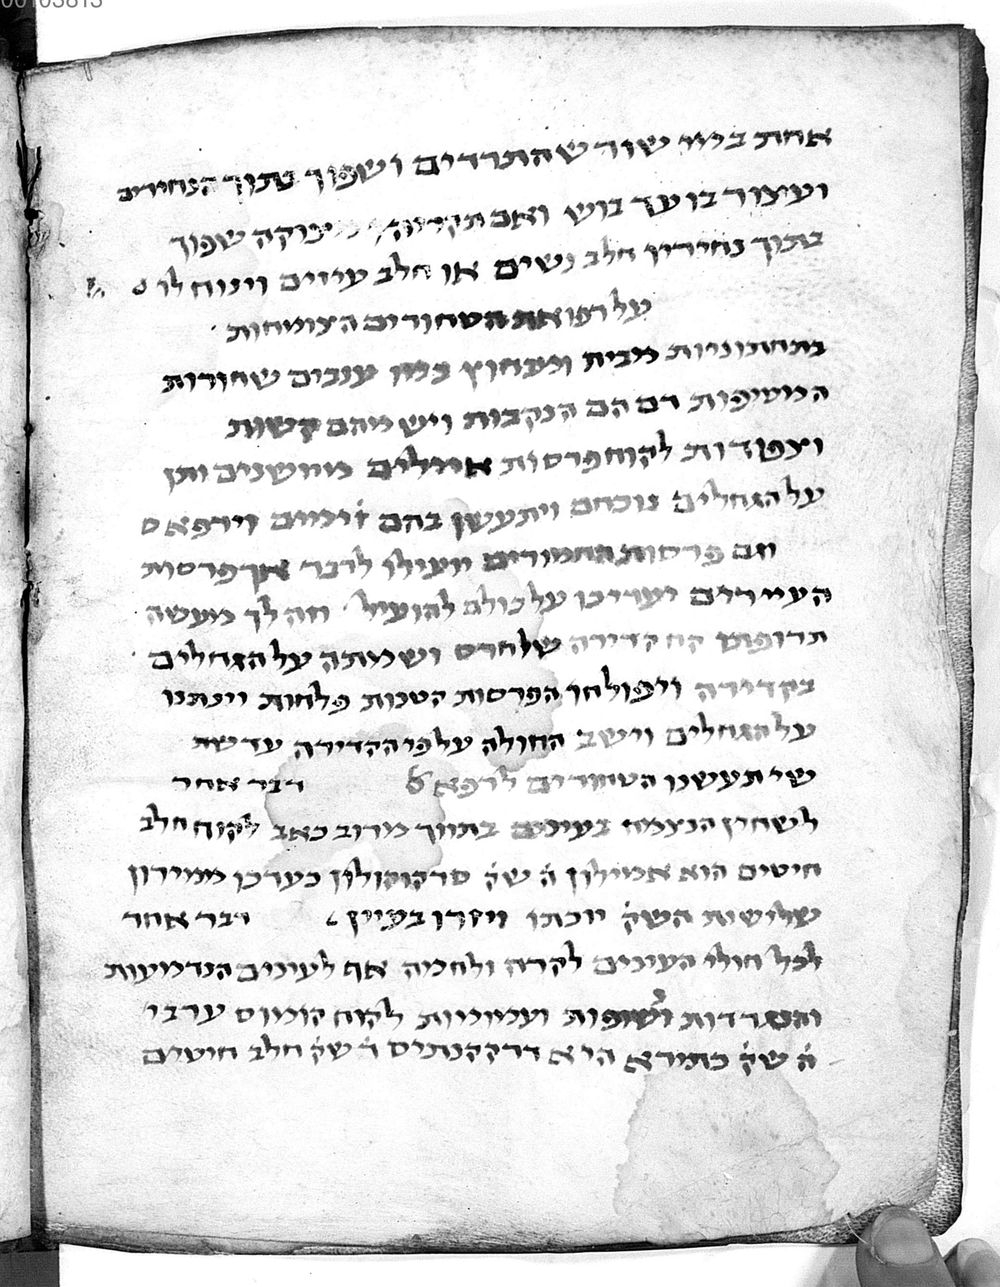 00103813
אחת במי שור שהתרדים ושפוך בתוך הנחירים
ועצור בו עד בוש ואם תקדיח שפוך
בתוך נחיריו חלב נשים או חלב עיזים וינוח לו
על רפואת הטחורים הצומחות
בתחתוניות מבית ומבחוץ כמו ענבים שחורות
המטיפות דם הם הנקבות ויש מהם קשות
וצפודות לקוח פרסות אילים מיושנים ותן
על הגחלים נוכחם ויתעשן בהם וירפא
וגם פרסות החמורים יועילו לדבר אך פרסות
העיירים יעדיפו על כולם להועיל וזה לך מעשה
תרופתם קח קדירה של חרס ושמתה על הגחלים
בקדירה ויפולחו הפרסות קטנות פלחות וינתנו
על הגחלים וישב החולה על פי הקדירה עד שת
שיתעשנו הטחורים לרפא דבר אחר
לשחין הנצמח בעינים בתווך מרוב כאב לקוח חלב
חיטים הוא אמילון ה שק סרקוקולון כערכו ממירון
שלישית השק יוכתו ויזרו בעיין דבר אחר
לכל חולי העינים לקרה ולחמה אף לעינים הנדמעות
והנגרדות ועמומיות לקוח קומוס ערבי
ה שק כתירא היא דרקקנתיס ה שק חלב חיטים